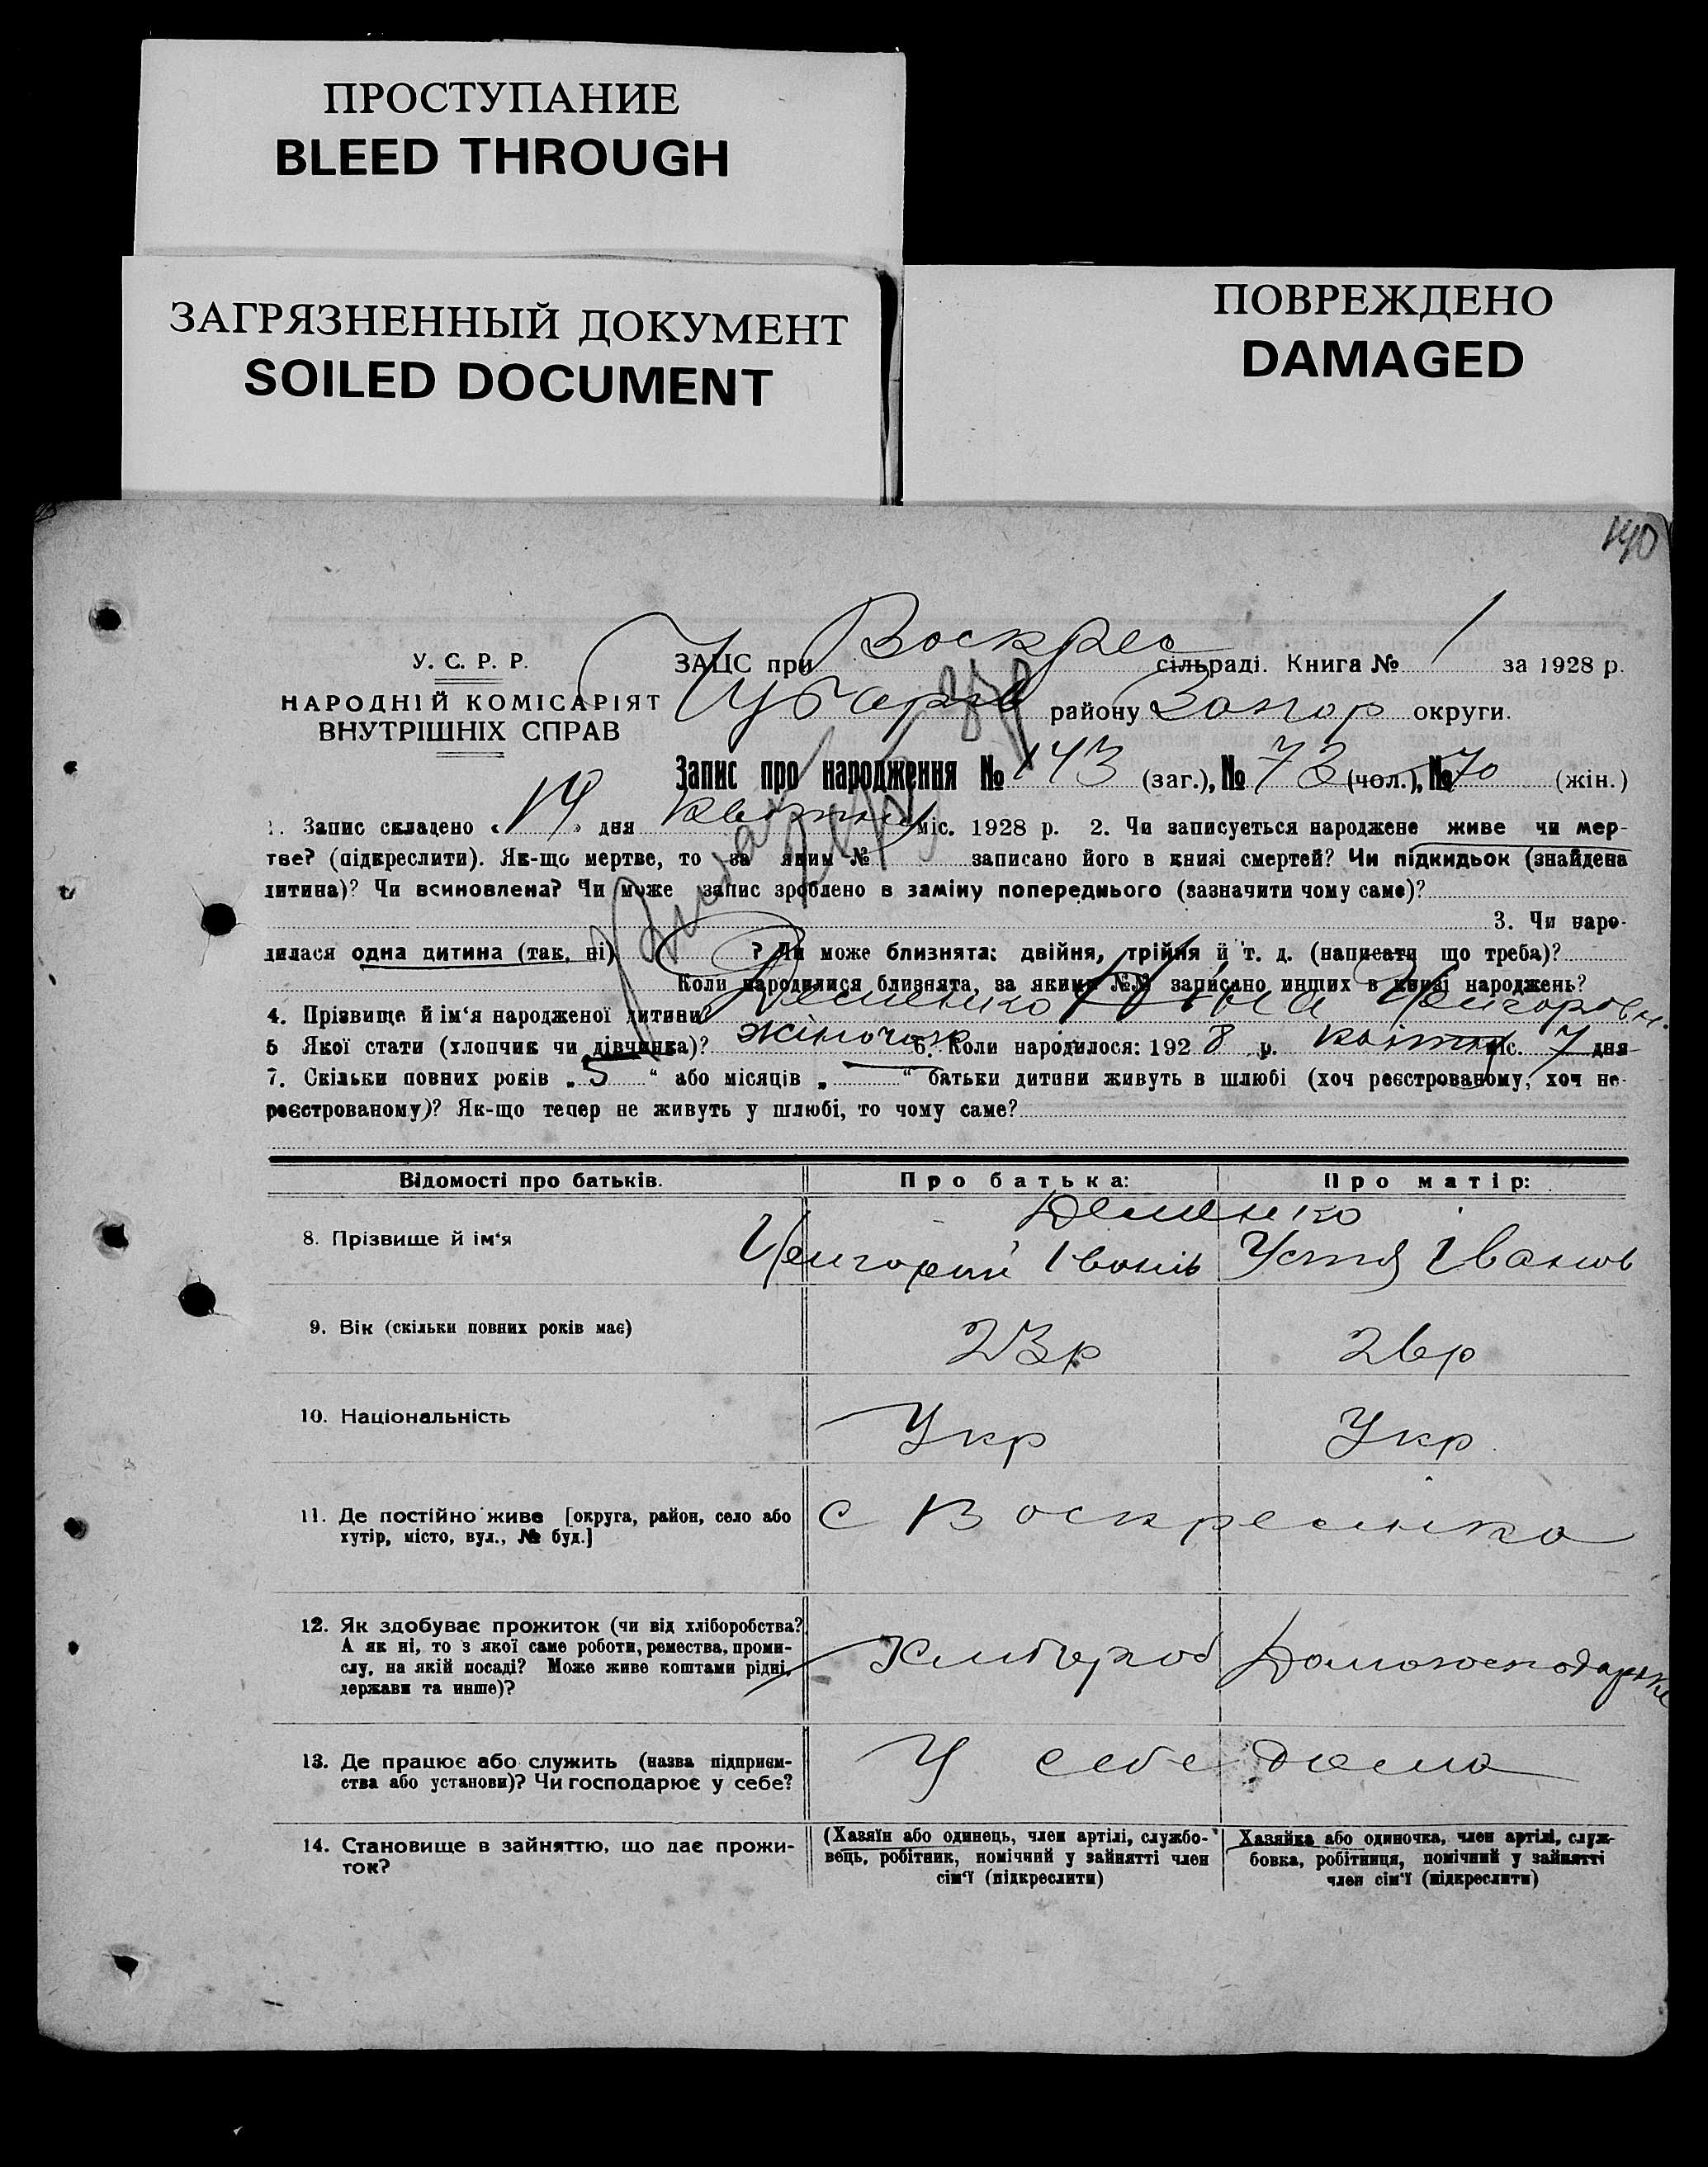 ПРОСТУПАНИЕ
BLEED THROUGH
ЗАГРЯЗНЕННЫЙ ДОКУМЕНТ
SOILED DOCUMENT
ПОВРЕЖДЕНО
DAMAGED
140
У. С. Р. Р.
НАРОДНІЙ КОМІСАРІЯТ
ВНУТРІШНІХ СПРАВ
ЗАЦС при Воскрес сільраді. Книга № 1 за 1928 р.
Чубарів району Запор округи.
Запис про народження № 143 (заг.), № 73 (чол.), № 70 (жін.)
1. Запис складено « 14 » дня квітня міс. 1928 р. 2. Чи записується народжене живе чи мер-
тве? (підкреслити). Як-що мертве, то за яким № записано його в книзі смертей? Чи підкидьок (знайдена
дитина)? Чи всиновлена? Чи може запис зроблено в заміну попереднього (зазначити чому саме)?
3. Чи наро-
дилася одна дитина (так, ні) ? Чи може близнята: двійня, трійня й т. д. (написати що треба)?
Коли народилися близнята, за якими №№ записано инших в книзі народжень?
4. Прізвище й ім'я народженої дитини? Деменко
5 Якої стати (хлопчик чи дівчинка)? жіночок 6. Коли народилося: 1928 р. квітня міс. 7 дня
7. Скільки повних років „ 5 “ або місяців „ “ батьки дитини живуть в шлюбі (хоч реєстрованому, хоч не-
реєстрованому)? Як-що тепер не живуть у шлюбі, то чому саме?
Відомості про батьків. Про батька: Про матір:
Деменко
8. Прізвище й ім'я Григорий Іванів Устя Іванов
9. Вік (скільки повних років має) 23р 26р
10. Національність Укр Укр.
11. Де постійно живе [округа, район, село або
хутір, місто, вул., № буд.]
с Воскресенка
12. Як здобуває прожиток (чи від хліборобства?
А як ні, то з якої саме роботи, ремества, проми-
слу, на якій посаді? Може живе коштами рідні,
держави та инше)?
Хлибороб Домогосподарка
13. Де працює або служить (назва підприєм-
ства або установи)? Чи господарює у себе?
У себе дома
14. Становище в зайняттю, що дає прожи-
ток?
(Хазяїн або одинець, член артілі, службо-
вець, робітник, помічний у зайнятті член
сім'ї (підкреслити)
Хазяйка або одиночка, член артілі, служ-
бовка, робітниця, помічний у зайнятті
член сім'ї (підкреслити)